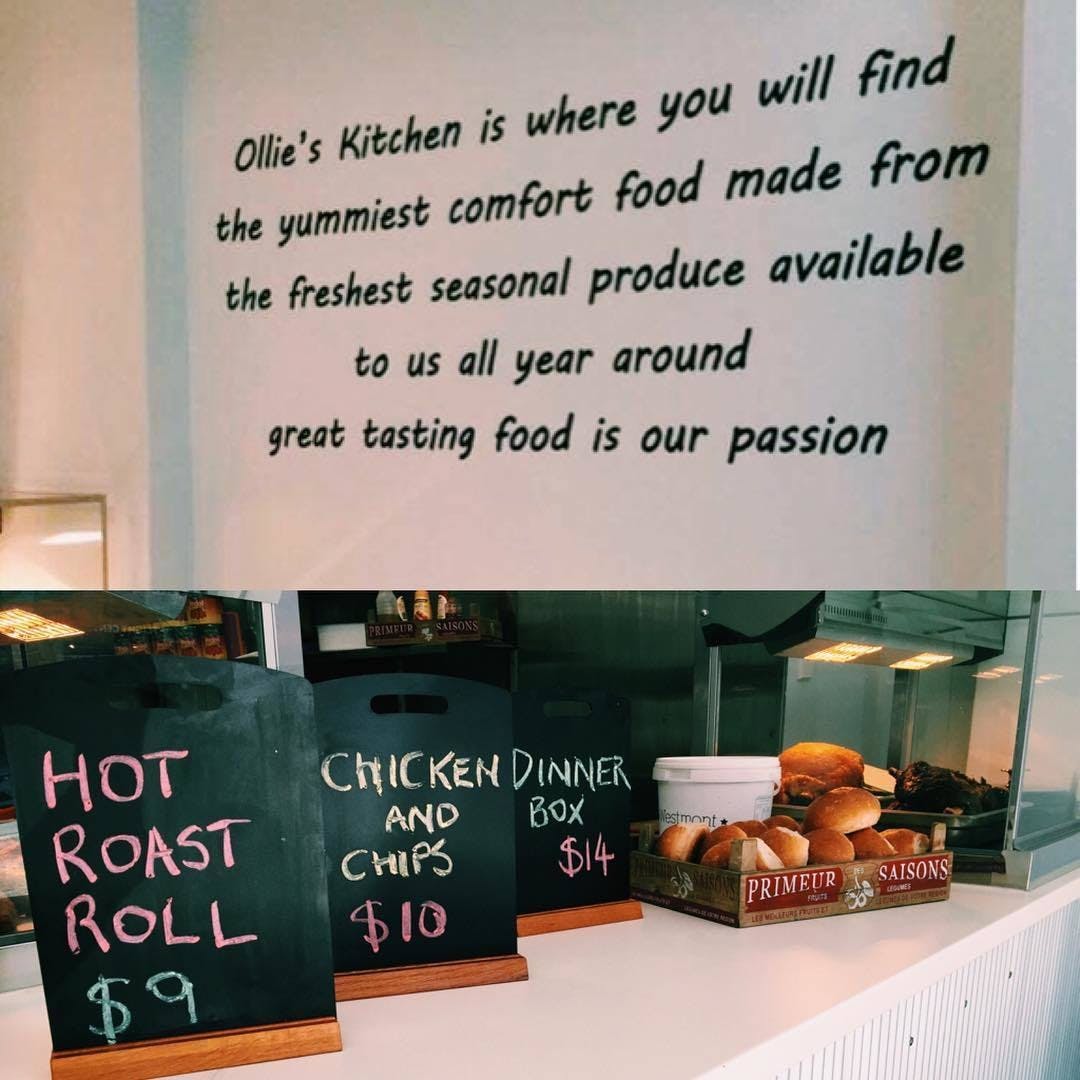 Ollie's Kitchen is where you will find
the yummiest comfort food made from
the freshest seasonal produce available
to us all year around
great tasting food is our passion
PRIMEUR SAISONS
HOT
ROAST
ROLL
$9
CHICKEN
AND
CHIPS
$10
DINNER
BOX
$14
Westmont
PRIMEUR DES SAISONS
FRUITS LEGUMES
LES MEILLEURS FRUITS ET LEGUMES DE VOTRE REGION